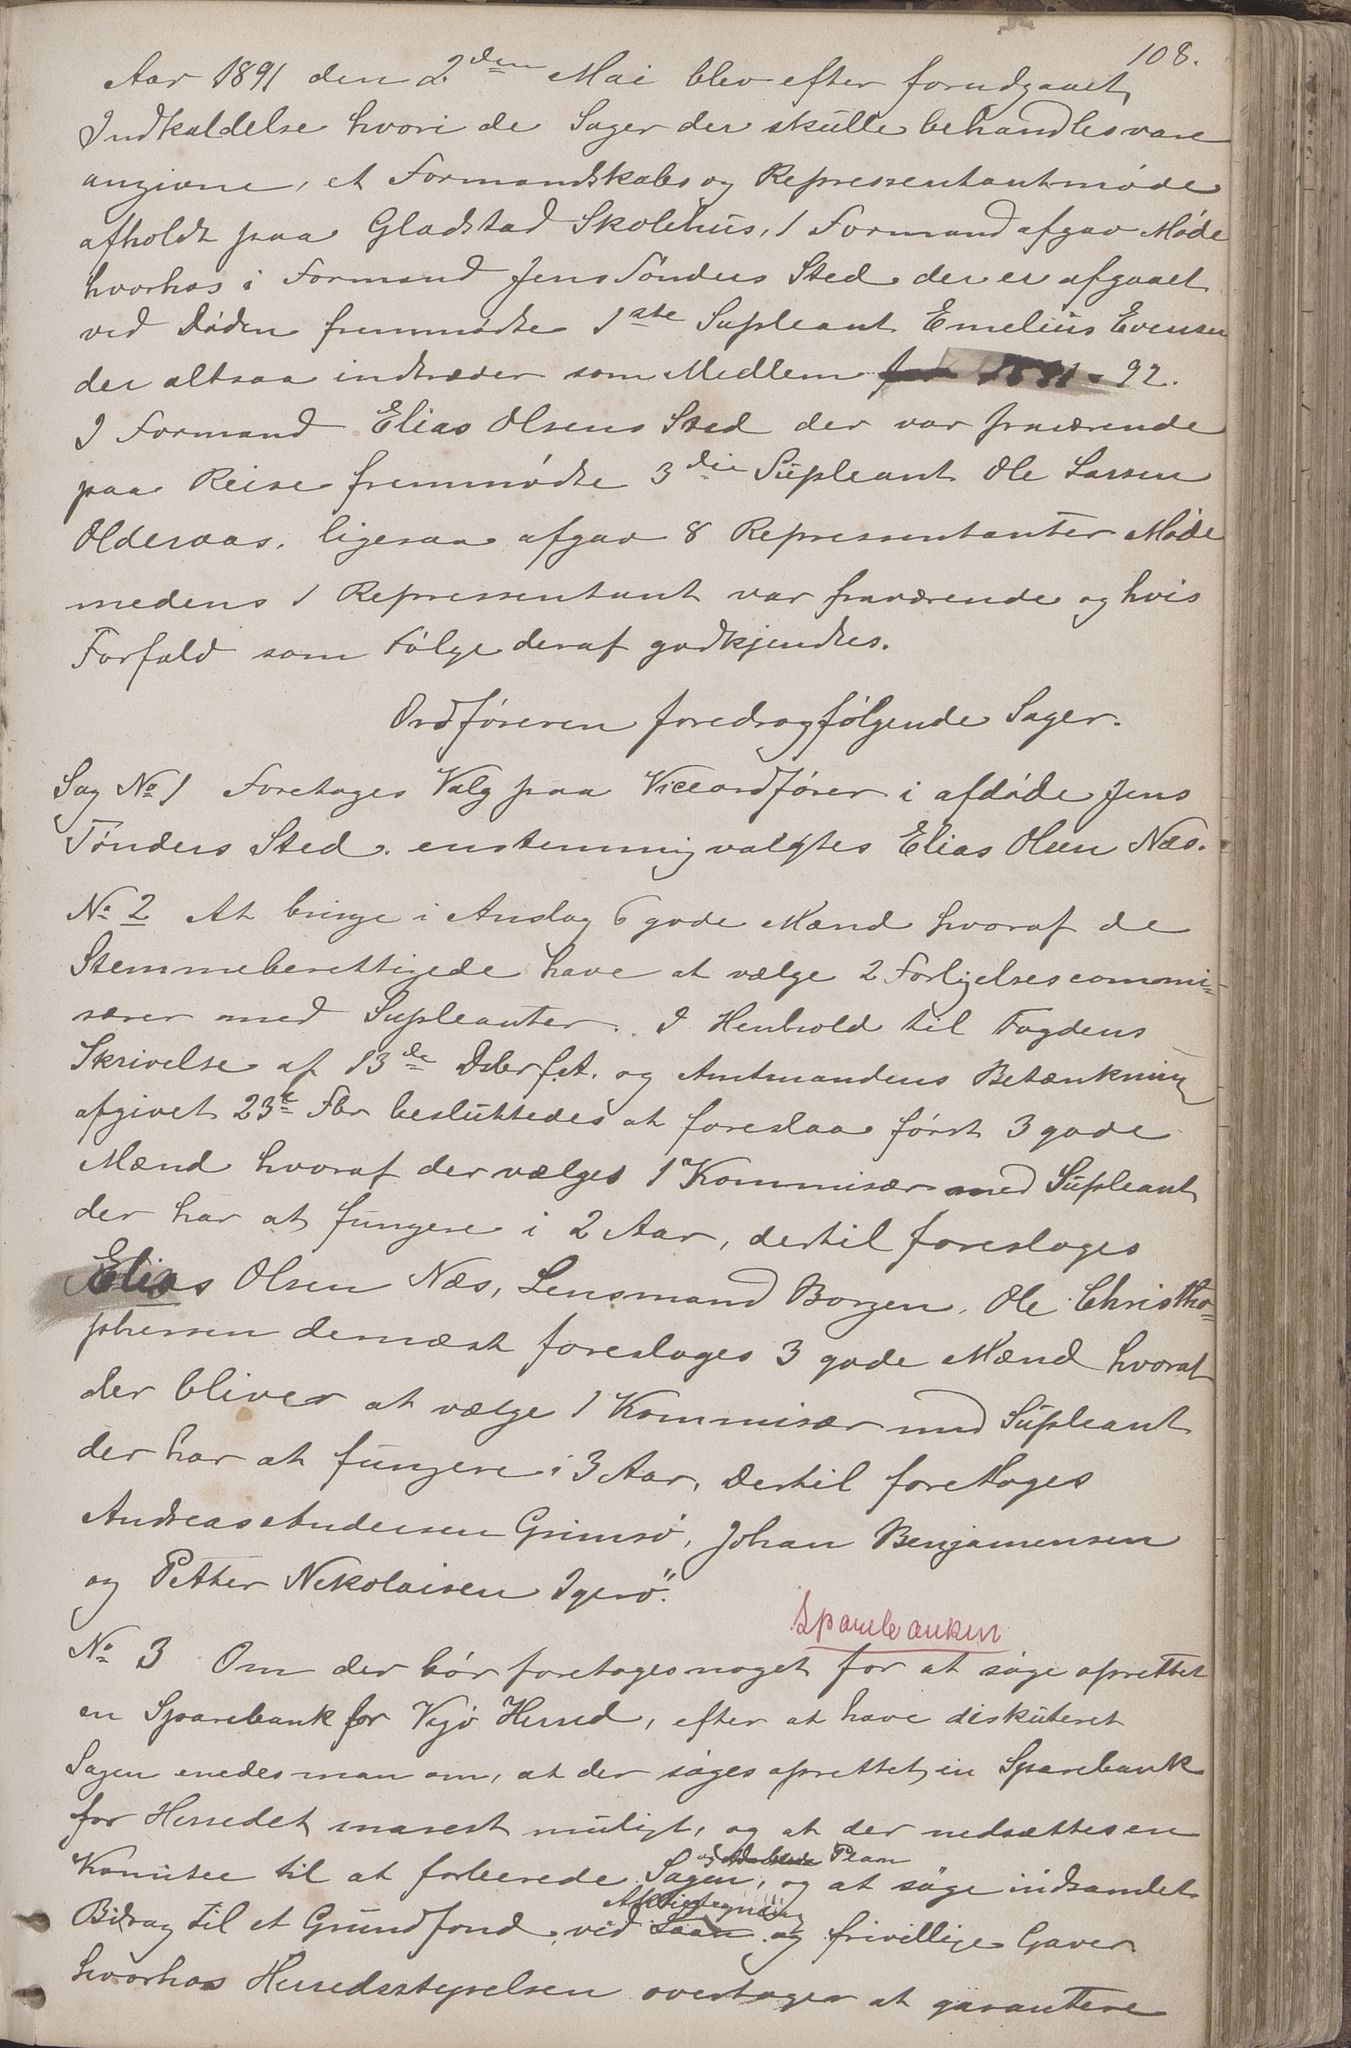 108.
Aar 1891 den 2den Mai blev efter forudgaaet
Indkaldelse hvori de Sager der skulle behandles vare
angivne, et Formandskabs og Repressentantmøde
afholdt paa Gladstad Skolehus, 1 Formand afgav Møde
hvorhos i Formand Jens Tønders Sted der er afgaaet
ved Døden fremmødte 1ste Supleant Emelius Evensen
der altsaa indtræder som Medlem for 1891-92.
I Formand Elias Olsens Sted der var fraværende
paa Reise fremmødte 3die Supleant Ole Larsen
Olderaas. ligesaa afgav 8 Repressentanter Møde
medens 1 Repressentant var fraværende og hvis
Forfald som Følge deraf godkjendtes.
Ordføreren foredrog følgende Sager.
Sag No 1 Foretages Valg paa Viceordfører i afdøde Jens
Tønders Sted. enstemmig valgtes Elias Olsen Næs.
No 2 At bringe i Anslag 6 gode Mænd hvoraf de
Stemmeberettigede have at vælge 2 Forligelsescommi-
særer med Supleanter. I Henhold til Fogdens
Skrivelse af 13de Dsbr f.A. og Amtmandens Betænkning
afgivet 23de Fbr besluttedes at foreslaa først 3 gode
Mænd hvoraf der vælges 1 Kommisær med Supleant
der har at fungere i 2 Aar, dertil foreslages
Elias Olsen Næs, Lensmand Borgen, Ole Christho-
phersen dernæst foreslages 3 gode Mænd hvoraf
der bliver at vælge 1 Kommisær med Supleant
der har at fungere i 3 Aar, Dertil foretlages
Andreas Andersen Grimsø, Johan Benjamensen
og Petter Nekolaisen Igerø.
Sparebanken
No 3 Om der bør foretages noget for at søge oprettet
en Sparebank for Vegø Herred, efter at have diskuteret
Sagen enedes man om, at der søges oprettet en Sparebank
for Herredet snarest muligt, og at der nedsættes en
og Plan
Komitee til at forberede Sagen, og at søge indsamlet
Aktietegning
Bidrag til et Grundfond ved Laan og frivillige Gaver
hvorhos Herredsstyrelsen overtager at garantere